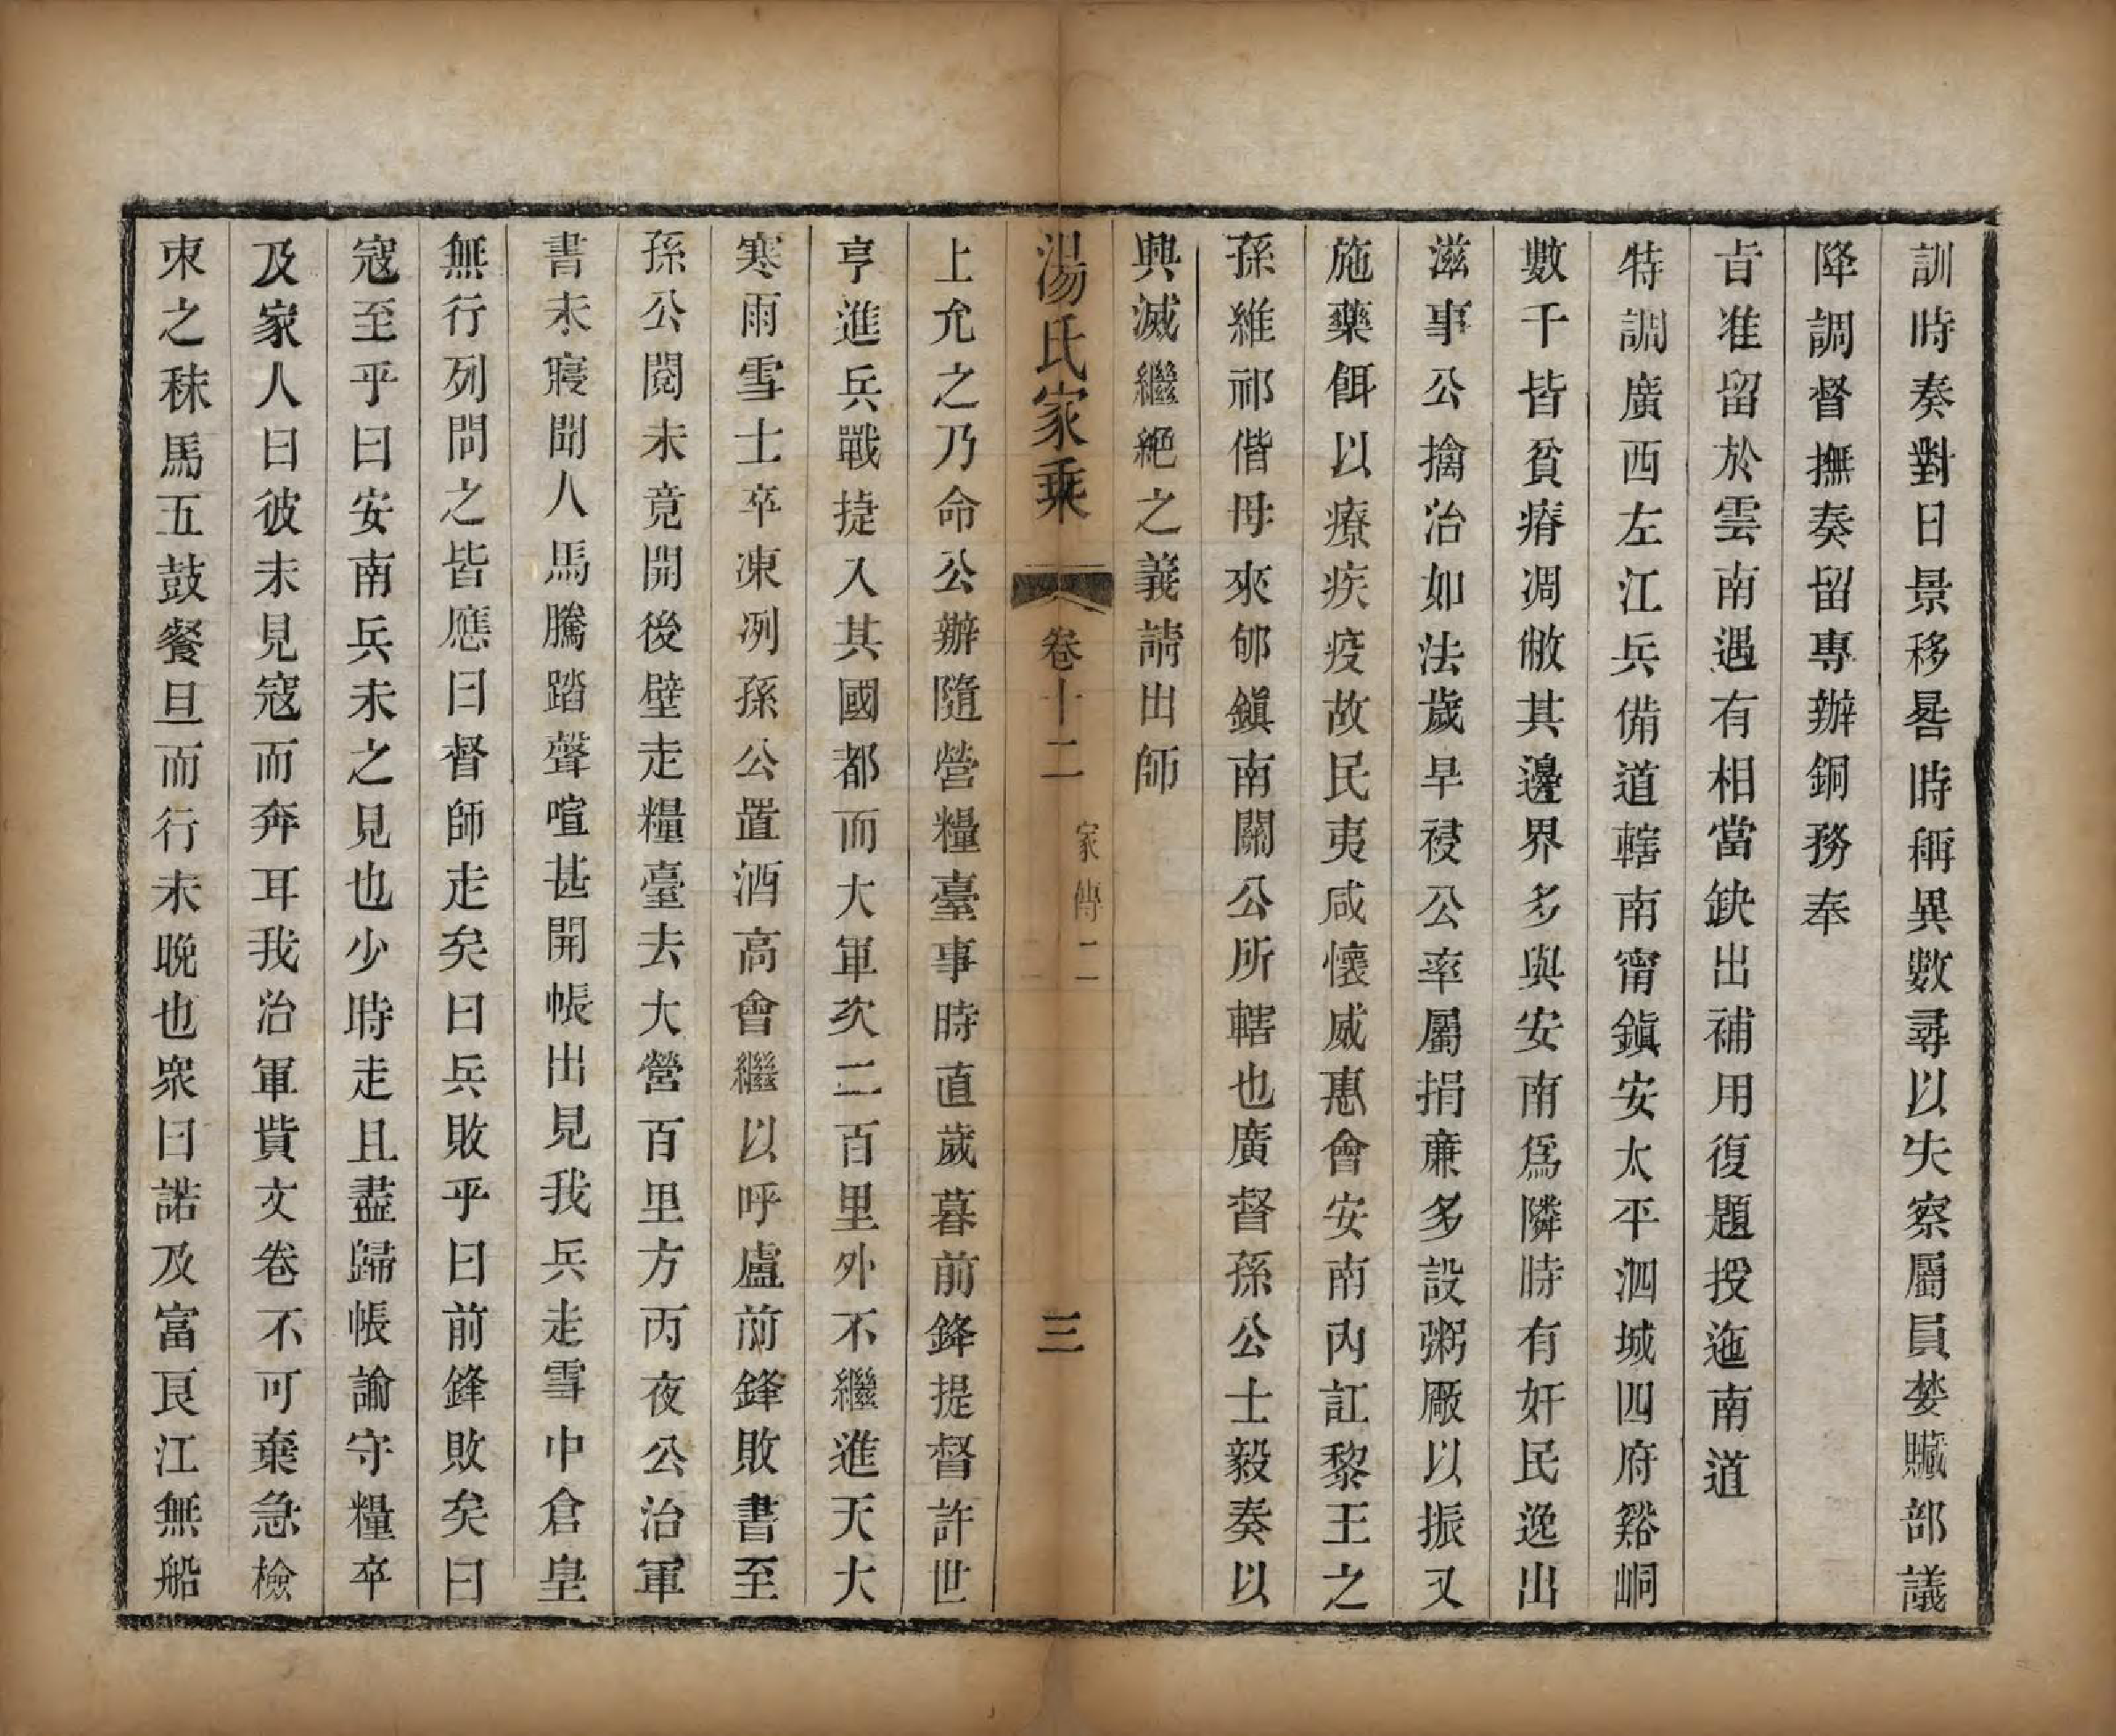 訓時奏對日景移晷時稱異數尋以失察屬員婪贓部議
降調督撫奏留專辦銅務奉
旨准留於雲南遇有相當缺出補用復題授迤南道
特調廣西左江兵備道轄南甯鎭安太平泗城四府谿峒
數千皆貧瘠凋敝其邊界多與安南爲隣時有奸民逸出
滋事公擒治如法歲旱祲公率屬捐亷多設粥厰以振又
施藥餌以療疾疫故民夷咸懷威惠會安南內訌黎王之
孫維祁偕母來郇鎭南關公所轄也廣督孫公士毅奏以
興滅繼絕之義請出師
湯氏家乘
卷十二
家傳二
三
上允之乃命公辦隨營糧臺事時直歲暮前鋒提督許世
亨進兵戰捷入其國都而大軍次二百里外不繼進天大
寒雨雪士卒凍冽孫公置酒高會繼以呼盧前鋒敗書至
孫公閱未竟開後壁走糧臺去大營百里方丙夜公治軍
書未寢聞人馬騰踏聲喧甚開帳出見我兵走雪中倉皇
無行列問之皆應曰督師走矣曰兵敗乎曰前鋒敗矣曰
寇至乎曰安南兵未之見也少時走且盡歸帳諭守糧卒
及家人曰彼未見寇而奔耳我治軍貲文卷不可棄急檢
束之秣馬五鼓餐旦而行未晚也衆曰諾及富艮江無船